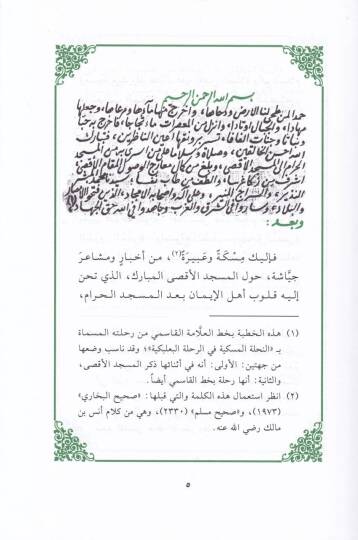 بسم الله الرحمن الرحيم
حمدا لمن طحى لنا الأرض ودحاها، وأخرج منها ماءها ومرعاها، وجعلها
مهادا، والجبال أوتادا، وأنزل من المعصرات ماء ثجاجا، فأخرج به حبا
ونباتا وجنات ألفافا، تسر برونقها أعين الناظرين، فتبارك
الله أحسن الخالقين، وصلاة وسلاما على من أسري به من المسجد
الحرام إلى المسجد الأقصى،
النذير، والسراج المنير، وعلى آله وأصحابه الأمجاد، الذين
والبلاد، وساروا في الشرق والغرب وجاهدوا في الله حق الجهاد
وبعد:
فإليك مِسْكَةً وعَبِيرَةً(٢)، من أخبارٍ ومشاعرَ
جيَّاشة، حول المسجد الأقصى المبارك، الذي تحن
إليه قلوب أهل الإيمان بعد المسجد الحرام،
(١) هذه الخطبة بخط العلَّامة القاسمي من رحلته المسماة
بـ «النحلة المسكية في الرحلة البعلبكية»؛ وقد ناسب وضعها
من جهتين: الأولى: أنه في أثنائها ذكر المسجد الأقصى،
والثانية: أنها رحلة بخط القاسمي أيضاً.
(٢) انظر استعمال هذه الكلمة والتي قبلها: «صحيح البخاري»
(١٩٧٣)، و«صحيح مسلم» (٢٣٣٠)، وهي من كلام أنس بن
مالك رضي الله عنه.
٥